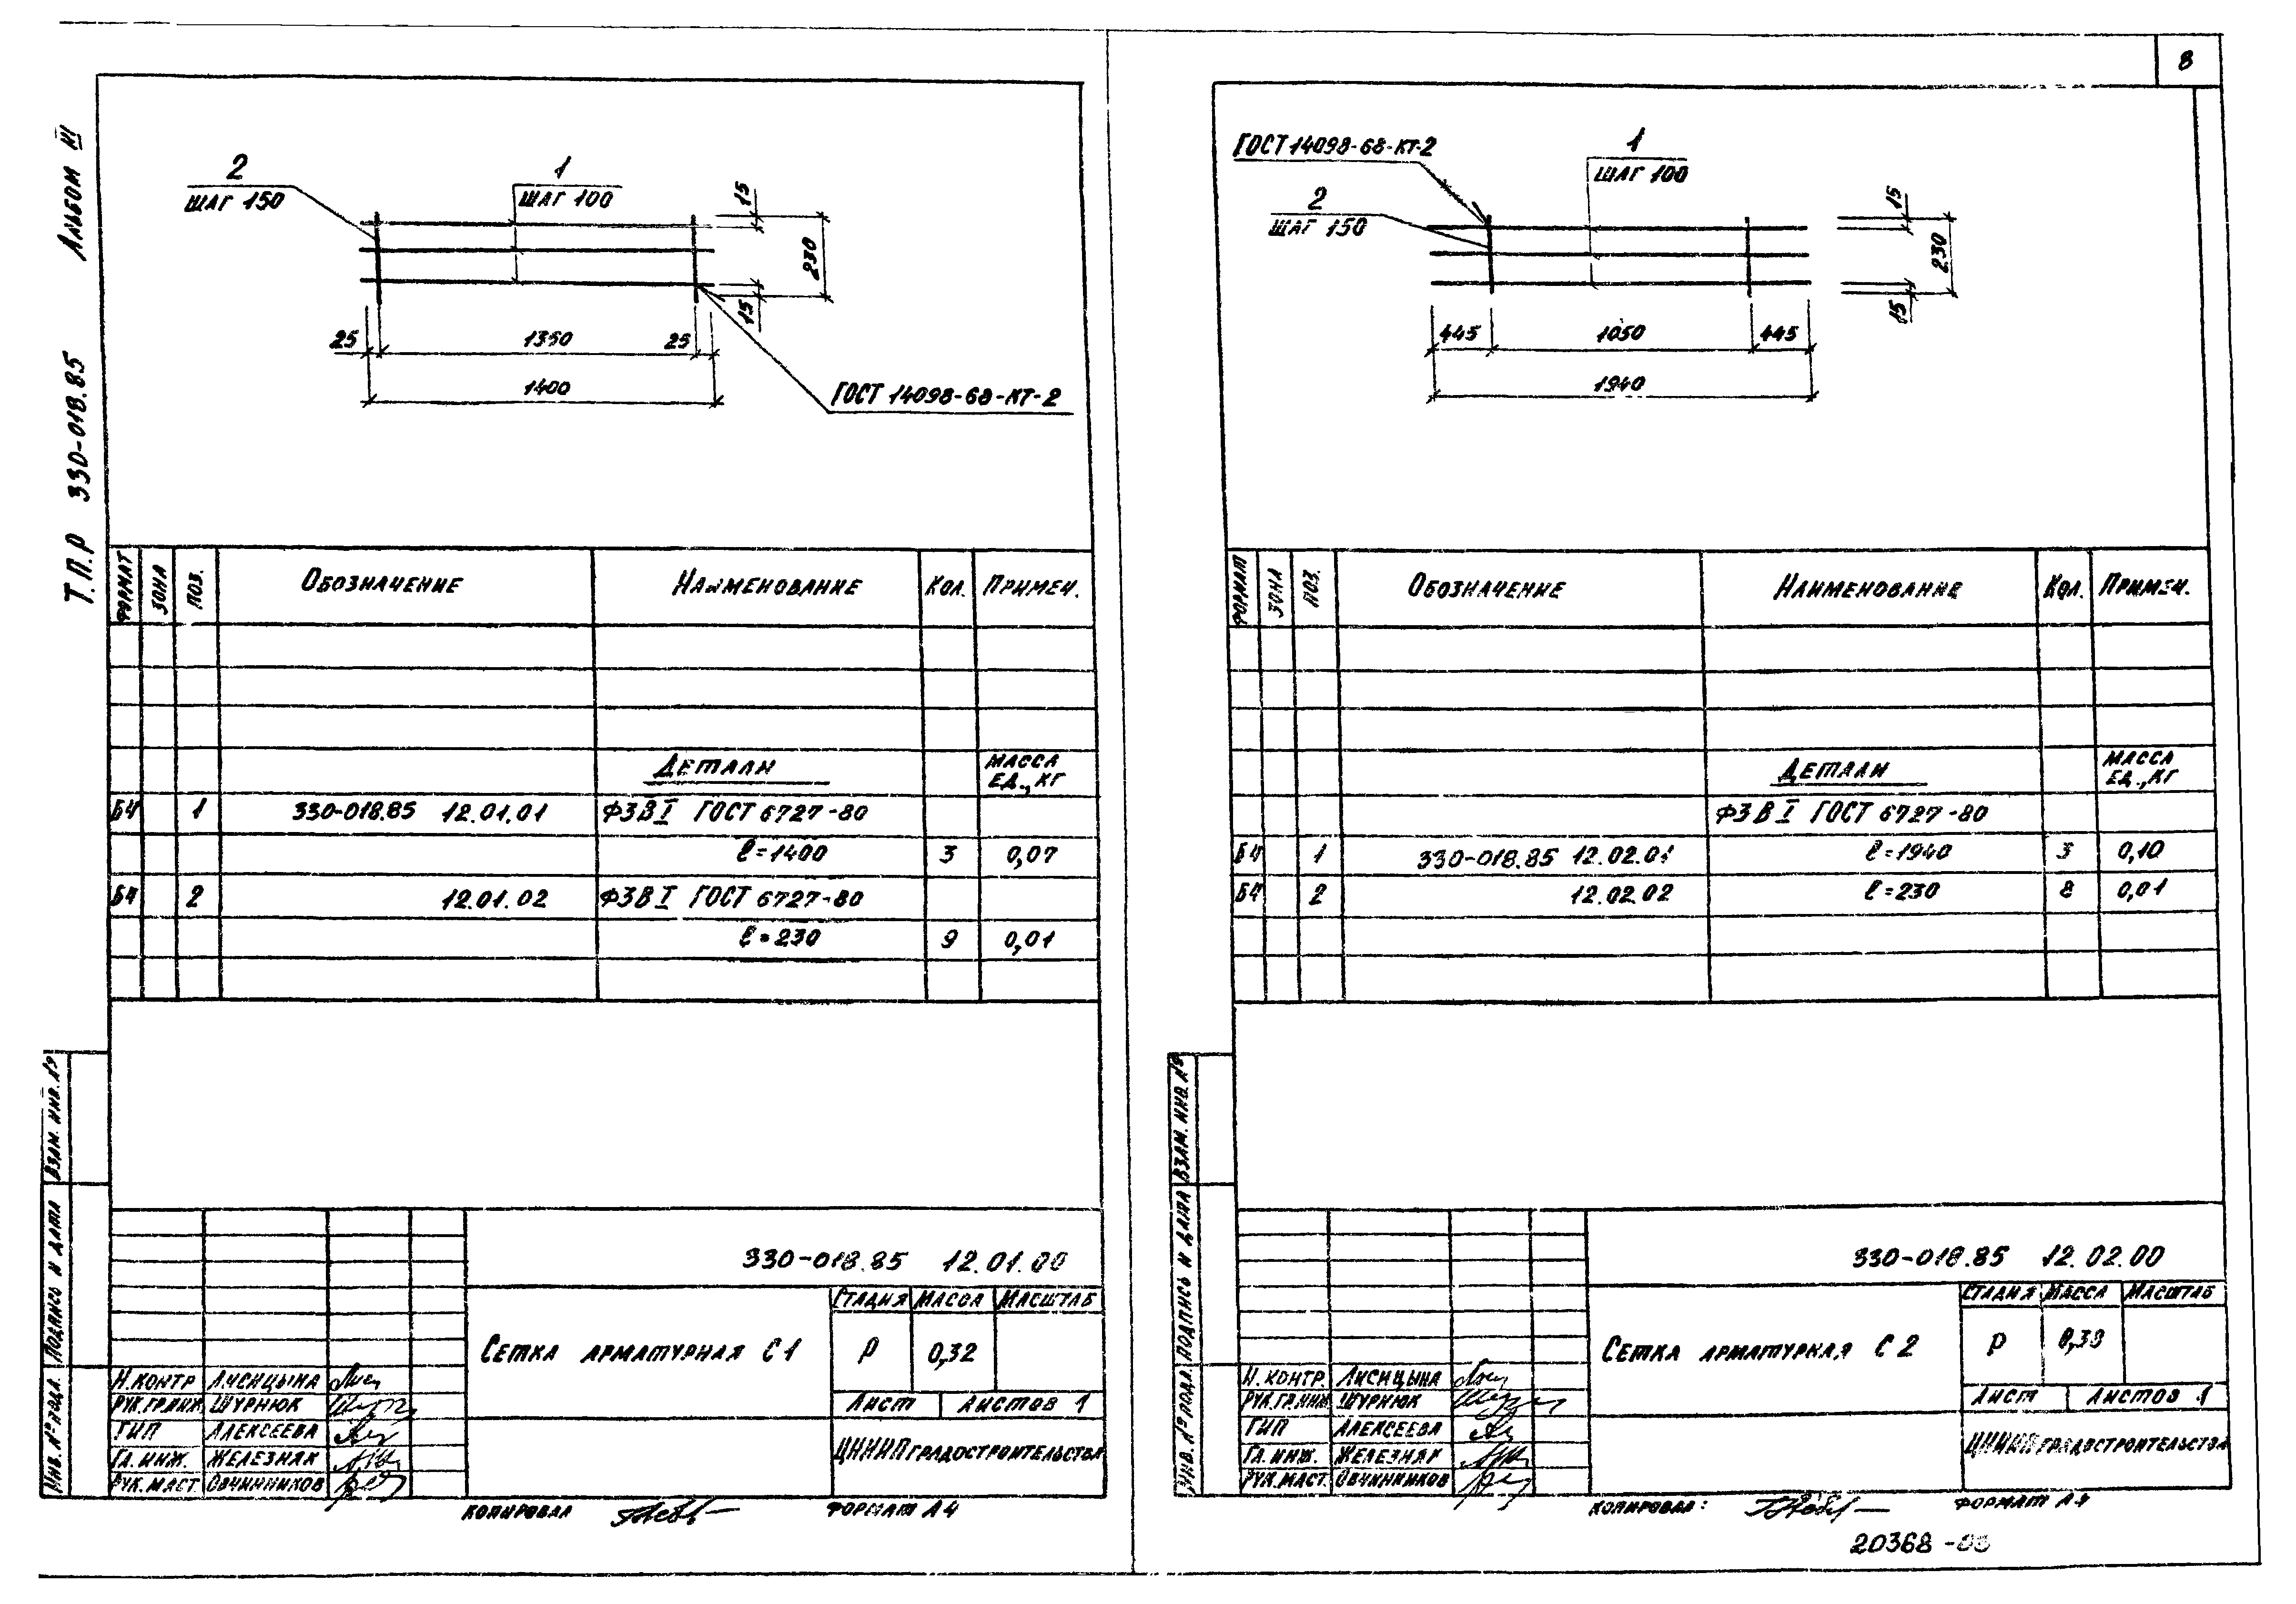 8
Т.П.Р 330-018.85 Альбом III
2
ШАГ 150
1
ШАГ 100
15
230
15
25 1350 25
1400
ГОСТ 14098-68-КТ-2
ФОРМАТ ЗОНА ПОЗ. ОБОЗНАЧЕНИЕ НАИМЕНОВАНИЕ КОЛ. ПРИМЕЧ.
ДЕТАЛИ МАССА ЕД., КГ
БЧ 1 330-018.85 12.01.01 Ф3ВI ГОСТ 6727-80
ℓ=1400 3 0,07
БЧ 2 12.01.02 Ф3ВI ГОСТ 6727-80
ℓ=230 9 0,01
ИНВ. № ПОДЛ. ПОДПИСЬ И ДАТА ВЗАМ. ИНВ. №
330-018.85 12.01.00
СЕТКА АРМАТУРНАЯ С1
СТАДИЯ МАССА МАСШТАБ
Р 0,32
ЛИСТ ЛИСТОВ 1
ЦНИИПГРАДОСТРОИТЕЛЬСТВА
Н.КОНТР ЛИСИЦЫНА
РУК.ГР.ИНЖ. ШУРНЮК
ГИП АЛЕКСЕЕВА
ГЛ.ИНЖ. ЖЕЛЕЗНЯК
РУК.МАСТ. ОВЧИННИКОВ
КОПИРОВАЛ ФОРМАТ А4
ГОСТ 14098-68-КТ-2
2
ШАГ 150
1
ШАГ 100
15
230
15
445 1050 445
1940
ФОРМАТ ЗОНА ПОЗ. ОБОЗНАЧЕНИЕ НАИМЕНОВАНИЕ КОЛ. ПРИМЕЧ.
ДЕТАЛИ МАССА ЕД., КГ
Ф3ВI ГОСТ 6727-80
БЧ 1 330-018.85 12.02.01 ℓ=1940 3 0,10
БЧ 2 12.02.02 ℓ=230 8 0,01
ИНВ. № ПОДЛ. ПОДПИСЬ И ДАТА ВЗАМ. ИНВ. №
330-018.85 12.02.00
СЕТКА АРМАТУРНАЯ С2
СТАДИЯ МАССА МАСШТАБ
Р
ЛИСТ ЛИСТОВ 1
ЦНИИПГРАДОСТРОИТЕЛЬСТВА
Н.КОНТР. ЛИСИЦЫНА
РУК.ГР.ИНЖ. ШУРНЮК
ГИП АЛЕКСЕЕВА
ГЛ.ИНЖ. ЖЕЛЕЗНЯК
РУК.МАСТ. ОВЧИННИКОВ
КОПИРОВАЛ: ФОРМАТ А4
20368